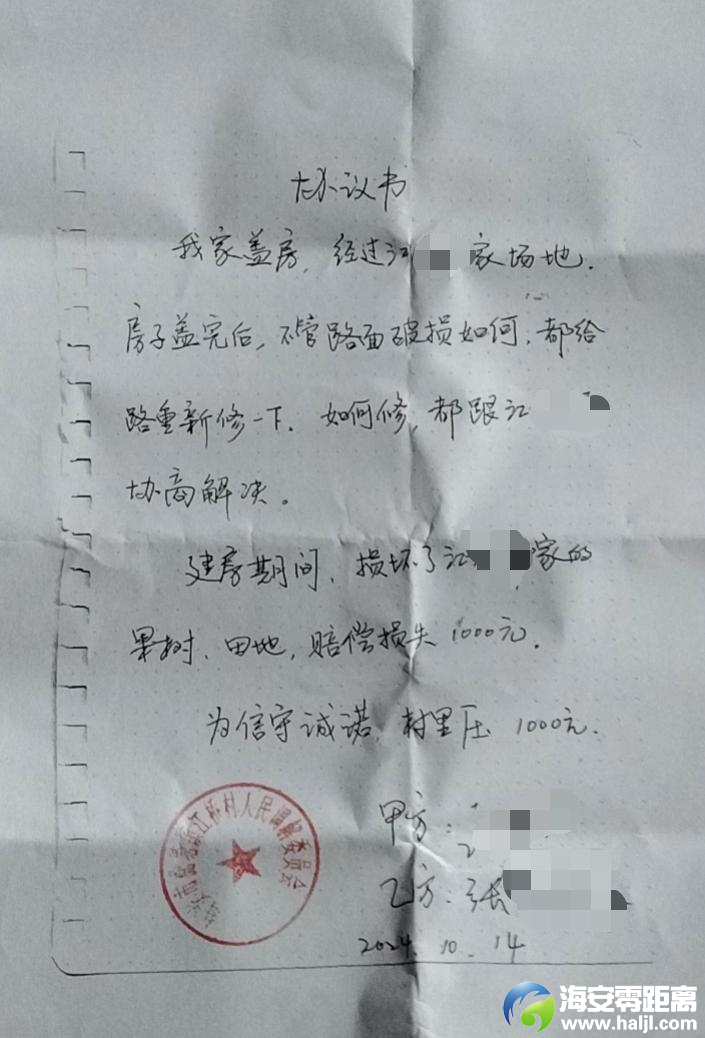 协议书
我家盖房，经过江 家场地．
房子盖完后，不管路面破损如何，都给
路重新修一下．如何修，都跟江
协商解决。
建房期间，损坏了江 家的
果树、田地，赔偿损失1000元．
为信守诚诺，村里压 1000元．
甲方：
乙方：张
2024．10．14
江桥村人民调解委员会
海安零距离
www.haljl.com